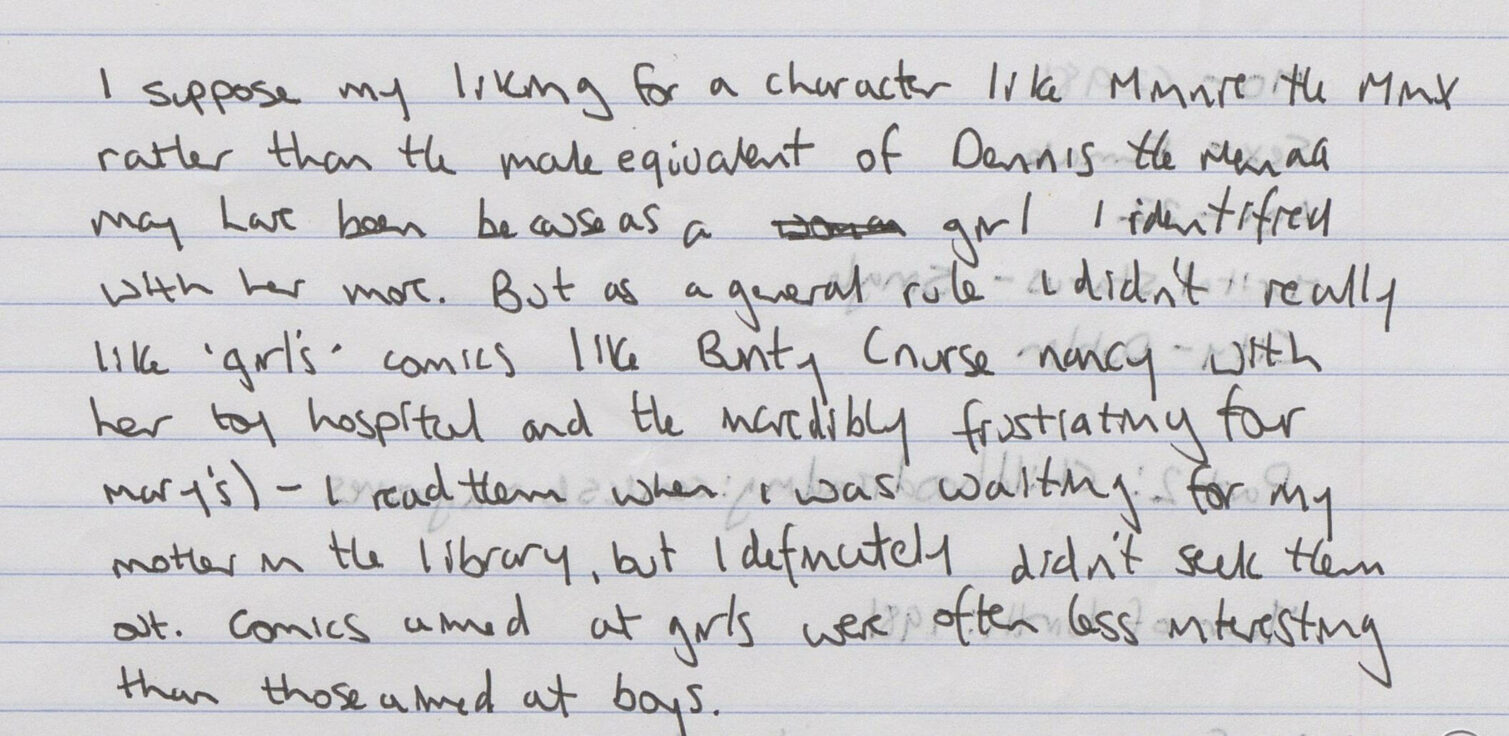 I suppose my liking for a character like Minnie the Minx
rather than the male equivalent of Dennis the Menace
may have been because as a girl I identified
with her more. But as a general rule I didn't really
like 'girl's' comics like Bunty (nurse nancy with
her toy hospital and the incredibly frustrating four
mary's) - I read them when I was waiting for my
mother in the library, but I definitely didn't seek them
out. Comics aimed at girls were often less interesting
than those aimed at boys.